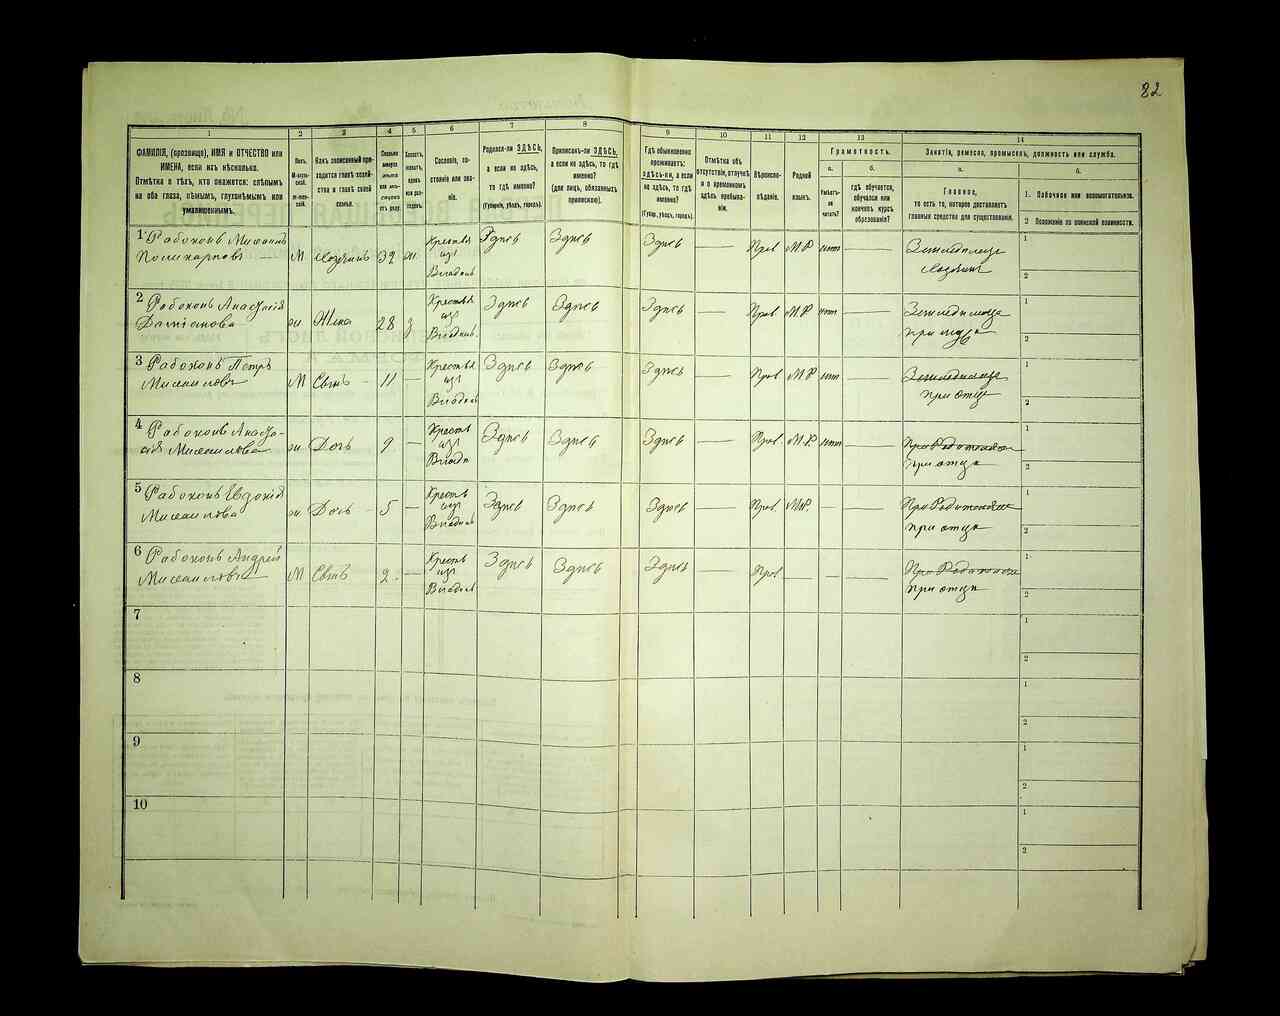 82
1
2
3
4
5
6
7
8
9
10
11
12
13
14
ФАМИЛІЯ, (прозвище), ИМЯ и ОТЧЕСТВО или
ИМЕНА, если ихъ нѣсколько.
Отмѣтка о тѣхъ, кто окажется: слѣпымъ
на оба глаза, нѣмымъ, глухонѣмымъ или
умалишеннымъ.
Полъ.
М-муж-
ской.
Ж-жен-
скій.
Какъ записанный при-
ходится главѣ хозяй-
ства и главѣ своей
семьи.
Сколько
минуло
лѣтъ
или мѣся-
цевъ
отъ роду.
Холостъ,
женатъ,
вдовъ
или раз-
веденъ.
Сословіе, со-
стояніе или зва-
ніе.
Родился-ли ЗДѢСЬ,
а если не здѣсь,
то гдѣ именно?
(Губернія, уѣздъ, городъ).
Приписанъ-ли ЗДѢСЬ,
а если не здѣсь, то гдѣ
именно?
(для лицъ, обязанныхъ
припискою).
Гдѣ обыкновенно
проживаетъ:
здѣсь-ли, а если
не здѣсь, то гдѣ
именно?
(Губер., уѣздъ, городъ).
Отмѣтка объ
отсутствіи, отлучкѣ
и о временномъ
здѣсь пребыва-
ніи.
Вѣроиспо-
вѣданіе.
Родной
языкъ.
Грамотность.
а.
б.
Умѣетъ-
ли
читать?
гдѣ обучается,
обучался или
кончилъ курсъ
образованія?
Занятіе, ремесло, промыселъ, должность или служба.
а.
б.
Главное,
то есть то, которое доставляетъ
главныя средства для существованія.
1. Побочное или вспомогательное.
2 Положеніе по воинской повинности.
1 Рабоконь Михаилъ
Поликарповъ — М Хозяинъ 32 ж Крестья изъ Владѣль Здѣсь Здѣсь Здѣсь — Прав М.Р. нет — Земледѣлецъ
Хозяинъ
1
2
2 Рабоконь Анастасія
Даміанова ж Жена 28 з Крестья изъ Владѣль. Здѣсь Здѣсь Здѣсь — Прав М.Р. нет — Земледѣлица
при мужѣ
1
2
3 Рабоконь Петръ
Михаиловъ М Сынъ - 11 — Крестья изъ Владѣль Здѣсь Здѣсь Здѣсь — Прав М.Р. нет — Земледѣлецъ
при отцѣ
1
2
4 Рабоконь Анаста-
сія Михаилова ж Дочь 9 — Крестья изъ Владѣ Здѣсь Здѣсь Здѣсь — Прав. М.Р. нет — При Родителяхъ
при отцѣ
1
2
5 Рабоконь Евдокія
Михаилова ж Дочь - 5 — Кресть изъ Владѣль Здѣсь Здѣсь Здѣсь — Прав. М.Р. — — При Родителяхъ
при отцѣ
1
2
6 Рабоконь Андрей
Михаиловъ М Сынъ 2. — Кресть изъ Владѣль Здѣсь Здѣсь Здѣсь — Прав — — — При Родителяхъ
при отцѣ
1
2
7
1
2
8
1
2
9
1
2
10
1
2